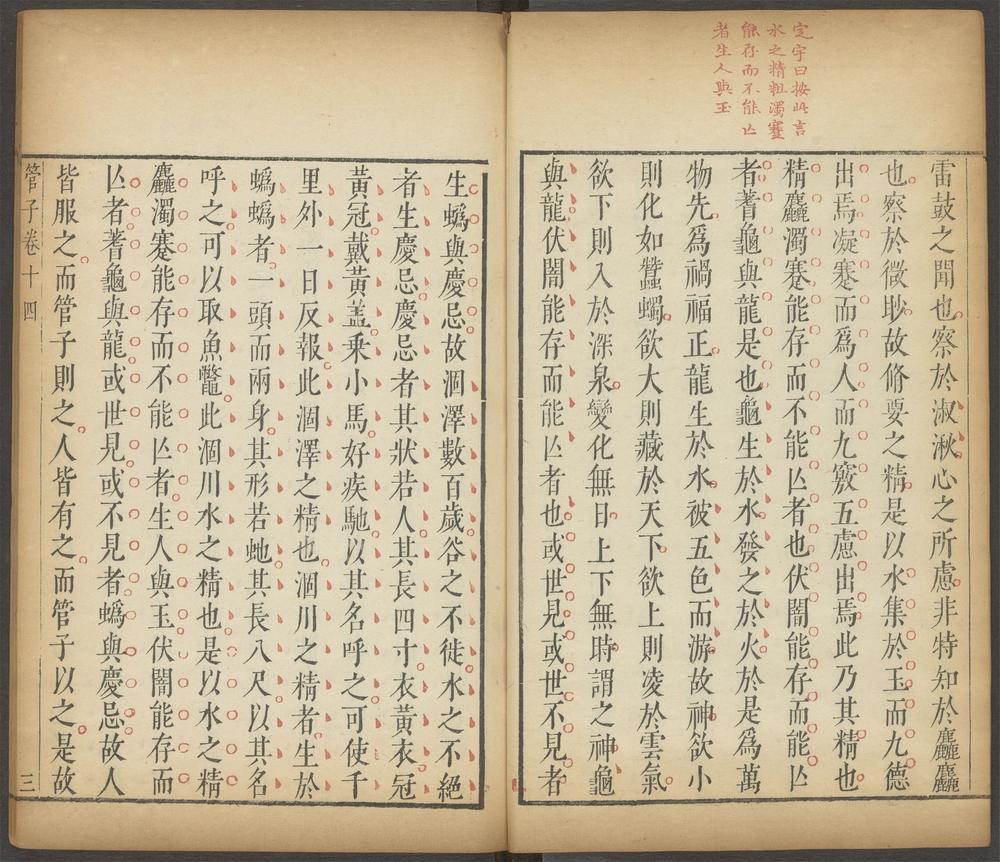 定宇曰按此言
水之精粗濁蹇
能存而不能亾
者生人與玉
雷鼓之聞也察於淑湫心之所慮非特知於麤麤
也察於微眇故脩要之精是以水集於玉而九德
出焉凝蹇而爲人而九竅五慮出焉此乃其精也
精麤濁蹇能存而不能亾者也伏闇能存而能亾
者蓍龜與龍是也龜生於水發之於火於是爲萬
物先爲禍福正龍生於水被五色而游故神欲小
則化如蠶蠋欲大則藏於天下欲上則凌於雲氣
欲下則入於深泉變化無日上下無時謂之神龜
與龍伏闇能存而能亾者也或世見或世不見者
生蟡與慶忌故涸澤數百歲谷之不徙水之不絕
者生慶忌慶忌者其狀若人其長四寸衣黃衣冠
黃冠戴黃蓋乘小馬好疾馳以其名呼之可使千
里外一日反報此涸澤之精也涸川之精者生於
蟡蟡者一頭而兩身其形若虵其長八尺以其名
呼之可以取魚鼈此涸川水之精也是以水之精
麤濁蹇能存而不能亾者生人與玉伏闇能存而
亾者蓍龜與龍或世見或不見者蟡與慶忌故人
皆服之而管子則之人皆有之而管子以之是故
管子卷十四
三